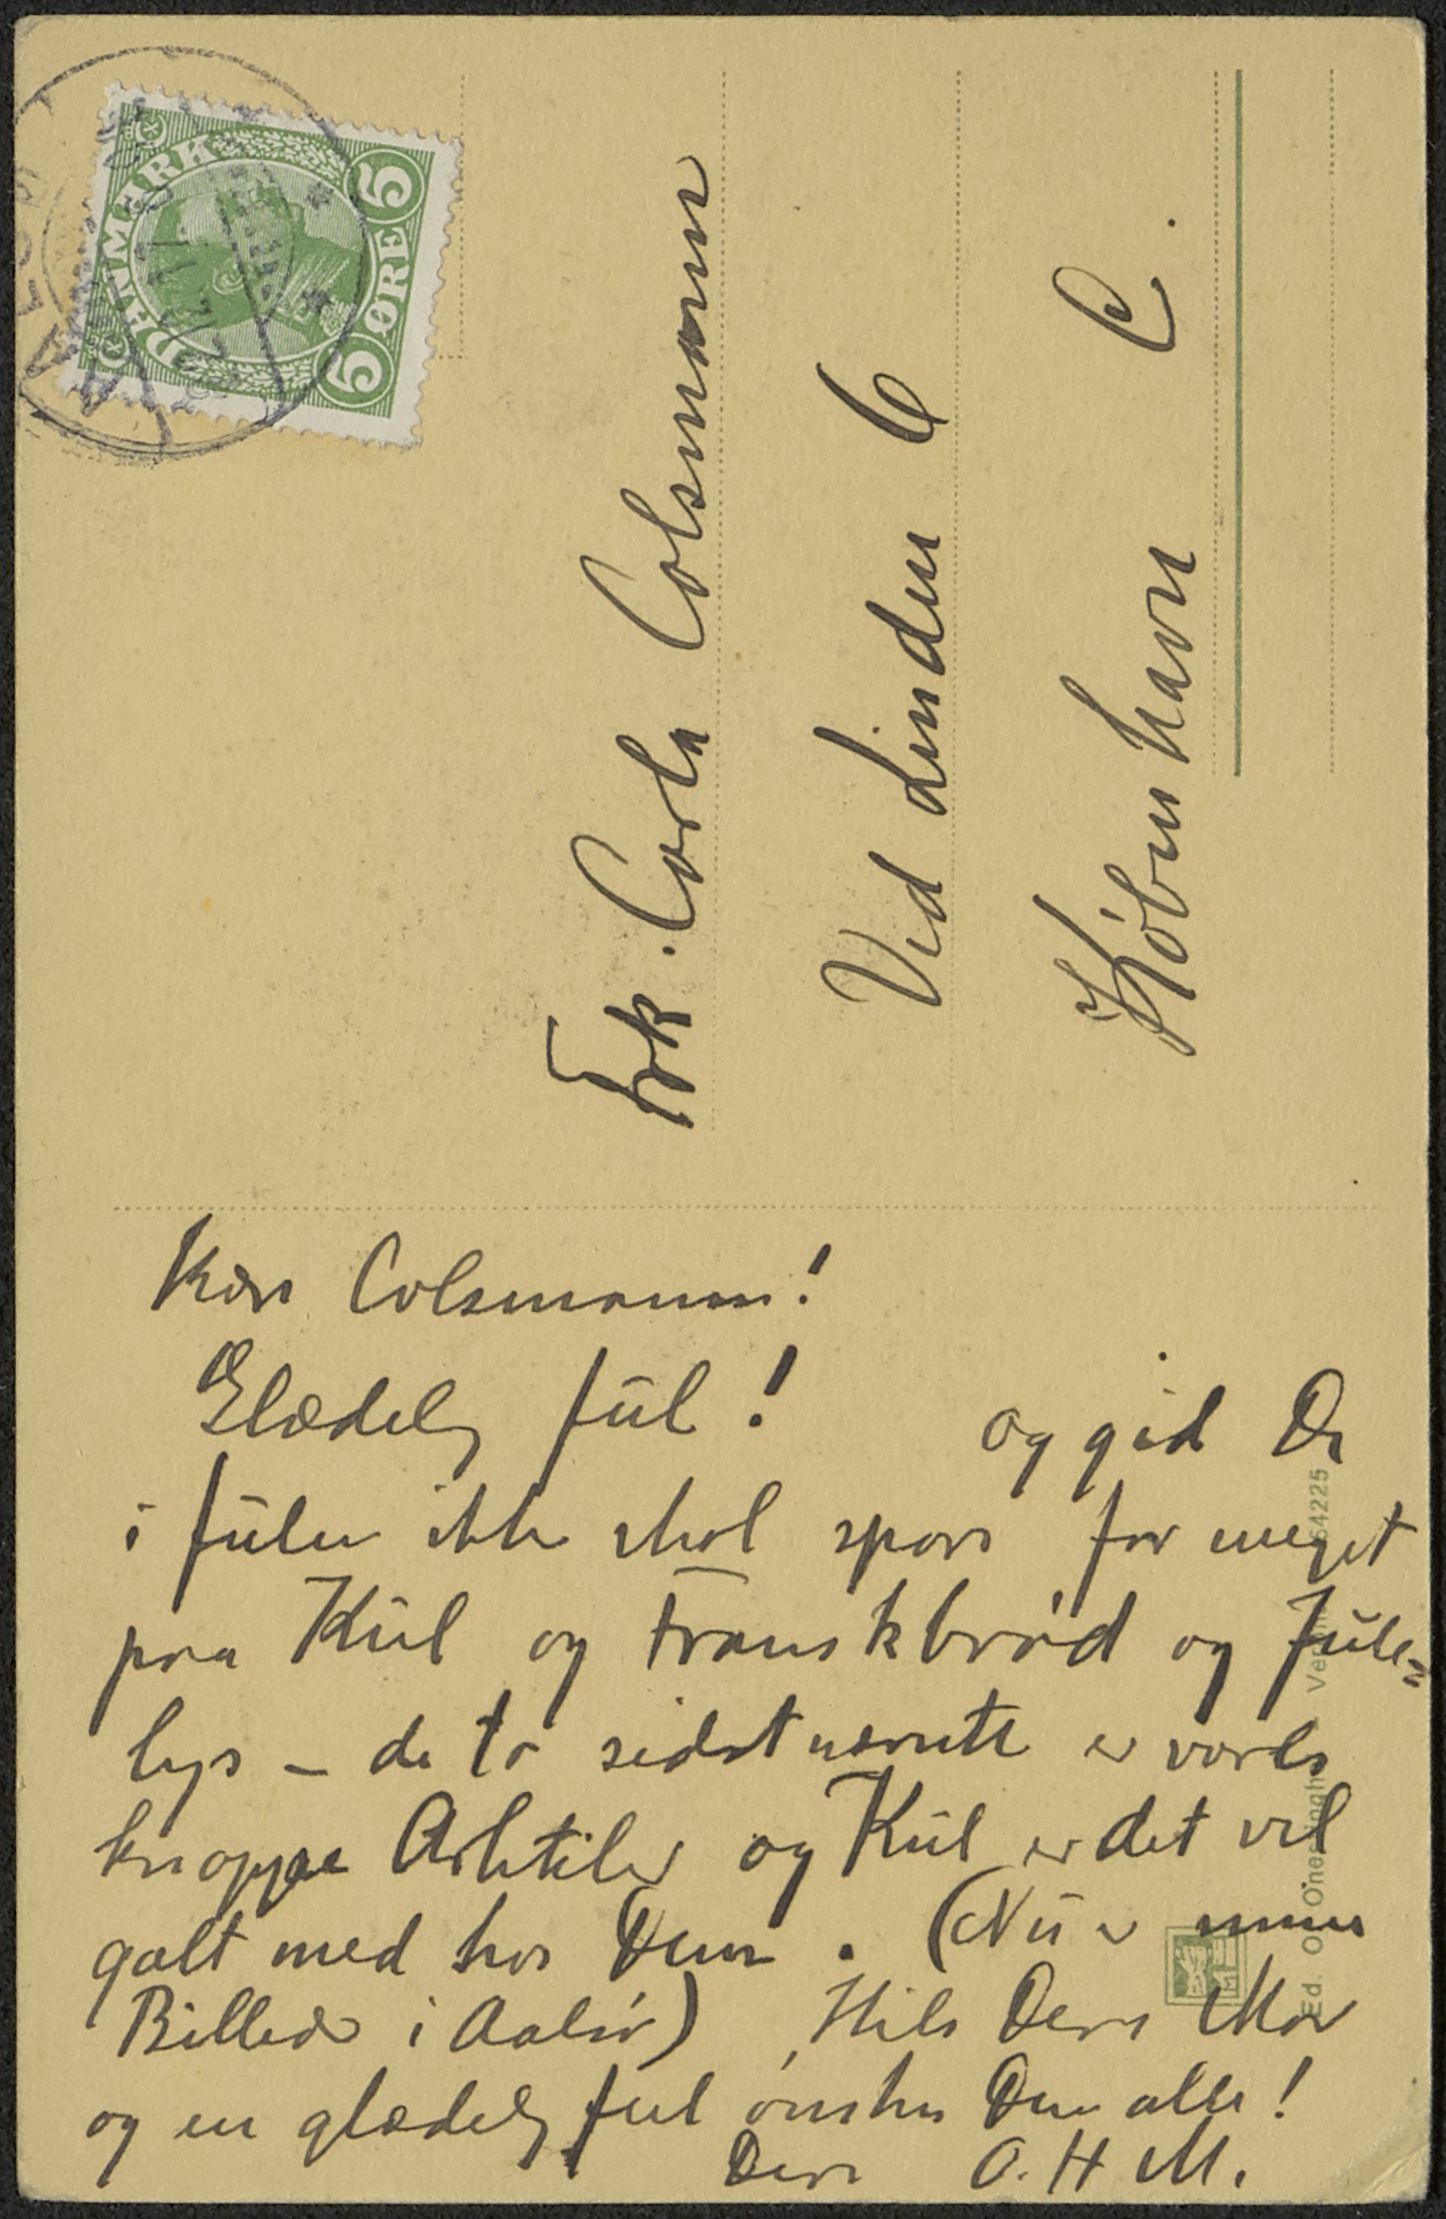 DANMARK
5 ØRE 5
Frk. Carla Colsmann
Ved Linden 6
København C.
Kære Colsmann!
Glædelig Jul! og gid De
i Julen ikke skal spare for meget
paa Kul og Franskbrød og Jule-
lys – de to sidstnævnte er vor
knappe Artikler og Kul er det vel
galt med hos Dem. (Nu er mine
Billeder i Aalsø) Hils Deres Mor
og en glædelig Jul ønskes Dem alle!
Deres O. H M.
64225